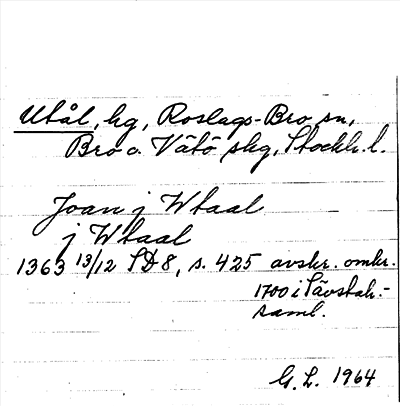 Utål, hg, Roslags-Bro sn,
Bro o. Vätö skg, Stockh. l.
Joan j Wtaal
j Wtaal
1363 13/12 SD 8, s. 425 avskr. omkr.
1700 i Sävstah.-
saml.
G. L. 1964